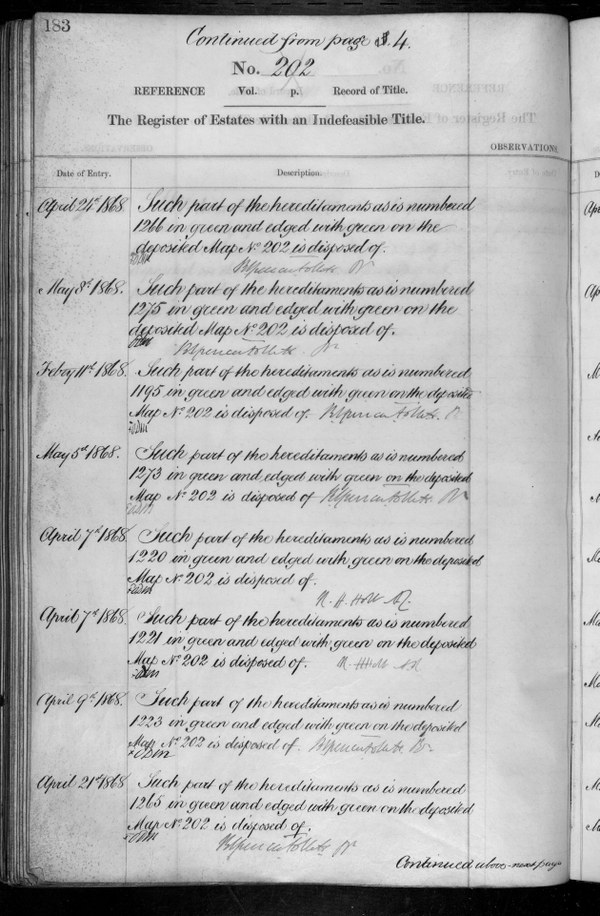 183
Continued from page 4.
No. 202
REFERENCE Vol. p. Record of Title.
The Register of Estates with an Indefeasible Title.
OBSERVATIONS.
Date of Entry. Description.
April 24th 1868. Such part of the hereditaments as is numbered
1266 in green and edged with green on the
deposited Map No 202 is disposed of.
May 8th 1868. Such part of the hereditaments as is numbered
1275 in green and edged with green on the
deposited Map No 202 is disposed of.
Febry 11th 1868. Such part of the hereditaments as is numbered
1195 in green and edged with green on the deposited
Map No 202 is disposed of.
May 5th 1868. Such part of the hereditaments as is numbered
1273 in green and edged with green on the deposited
Map No 202 is disposed of
April 7th 1868 Such part of the hereditaments as is numbered
1220 in green and edged with green on the deposited
Map No 202 is disposed of.
April 7th 1868 Such part of the hereditaments as is numbered
1221 in green and edged with green on the deposited
Map No 202 is disposed of.
April 9th 1868. Such part of the hereditaments as is numbered
1223 in green and edged with green on the deposited
Map No 202 is disposed of.
April 21st 1868 Such part of the hereditaments as is numbered
1265 in green and edged with green on the deposited
Map No 202 is disposed of.
Continued above next page